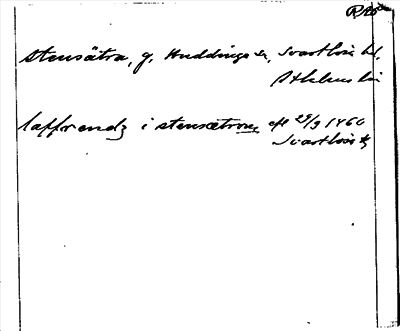 Stensätra, g, Huddinge sn, Svartlösa hd,
Sthlms län
laffrendz i stensætrom eft 29/9 1460
Svartlösa tb